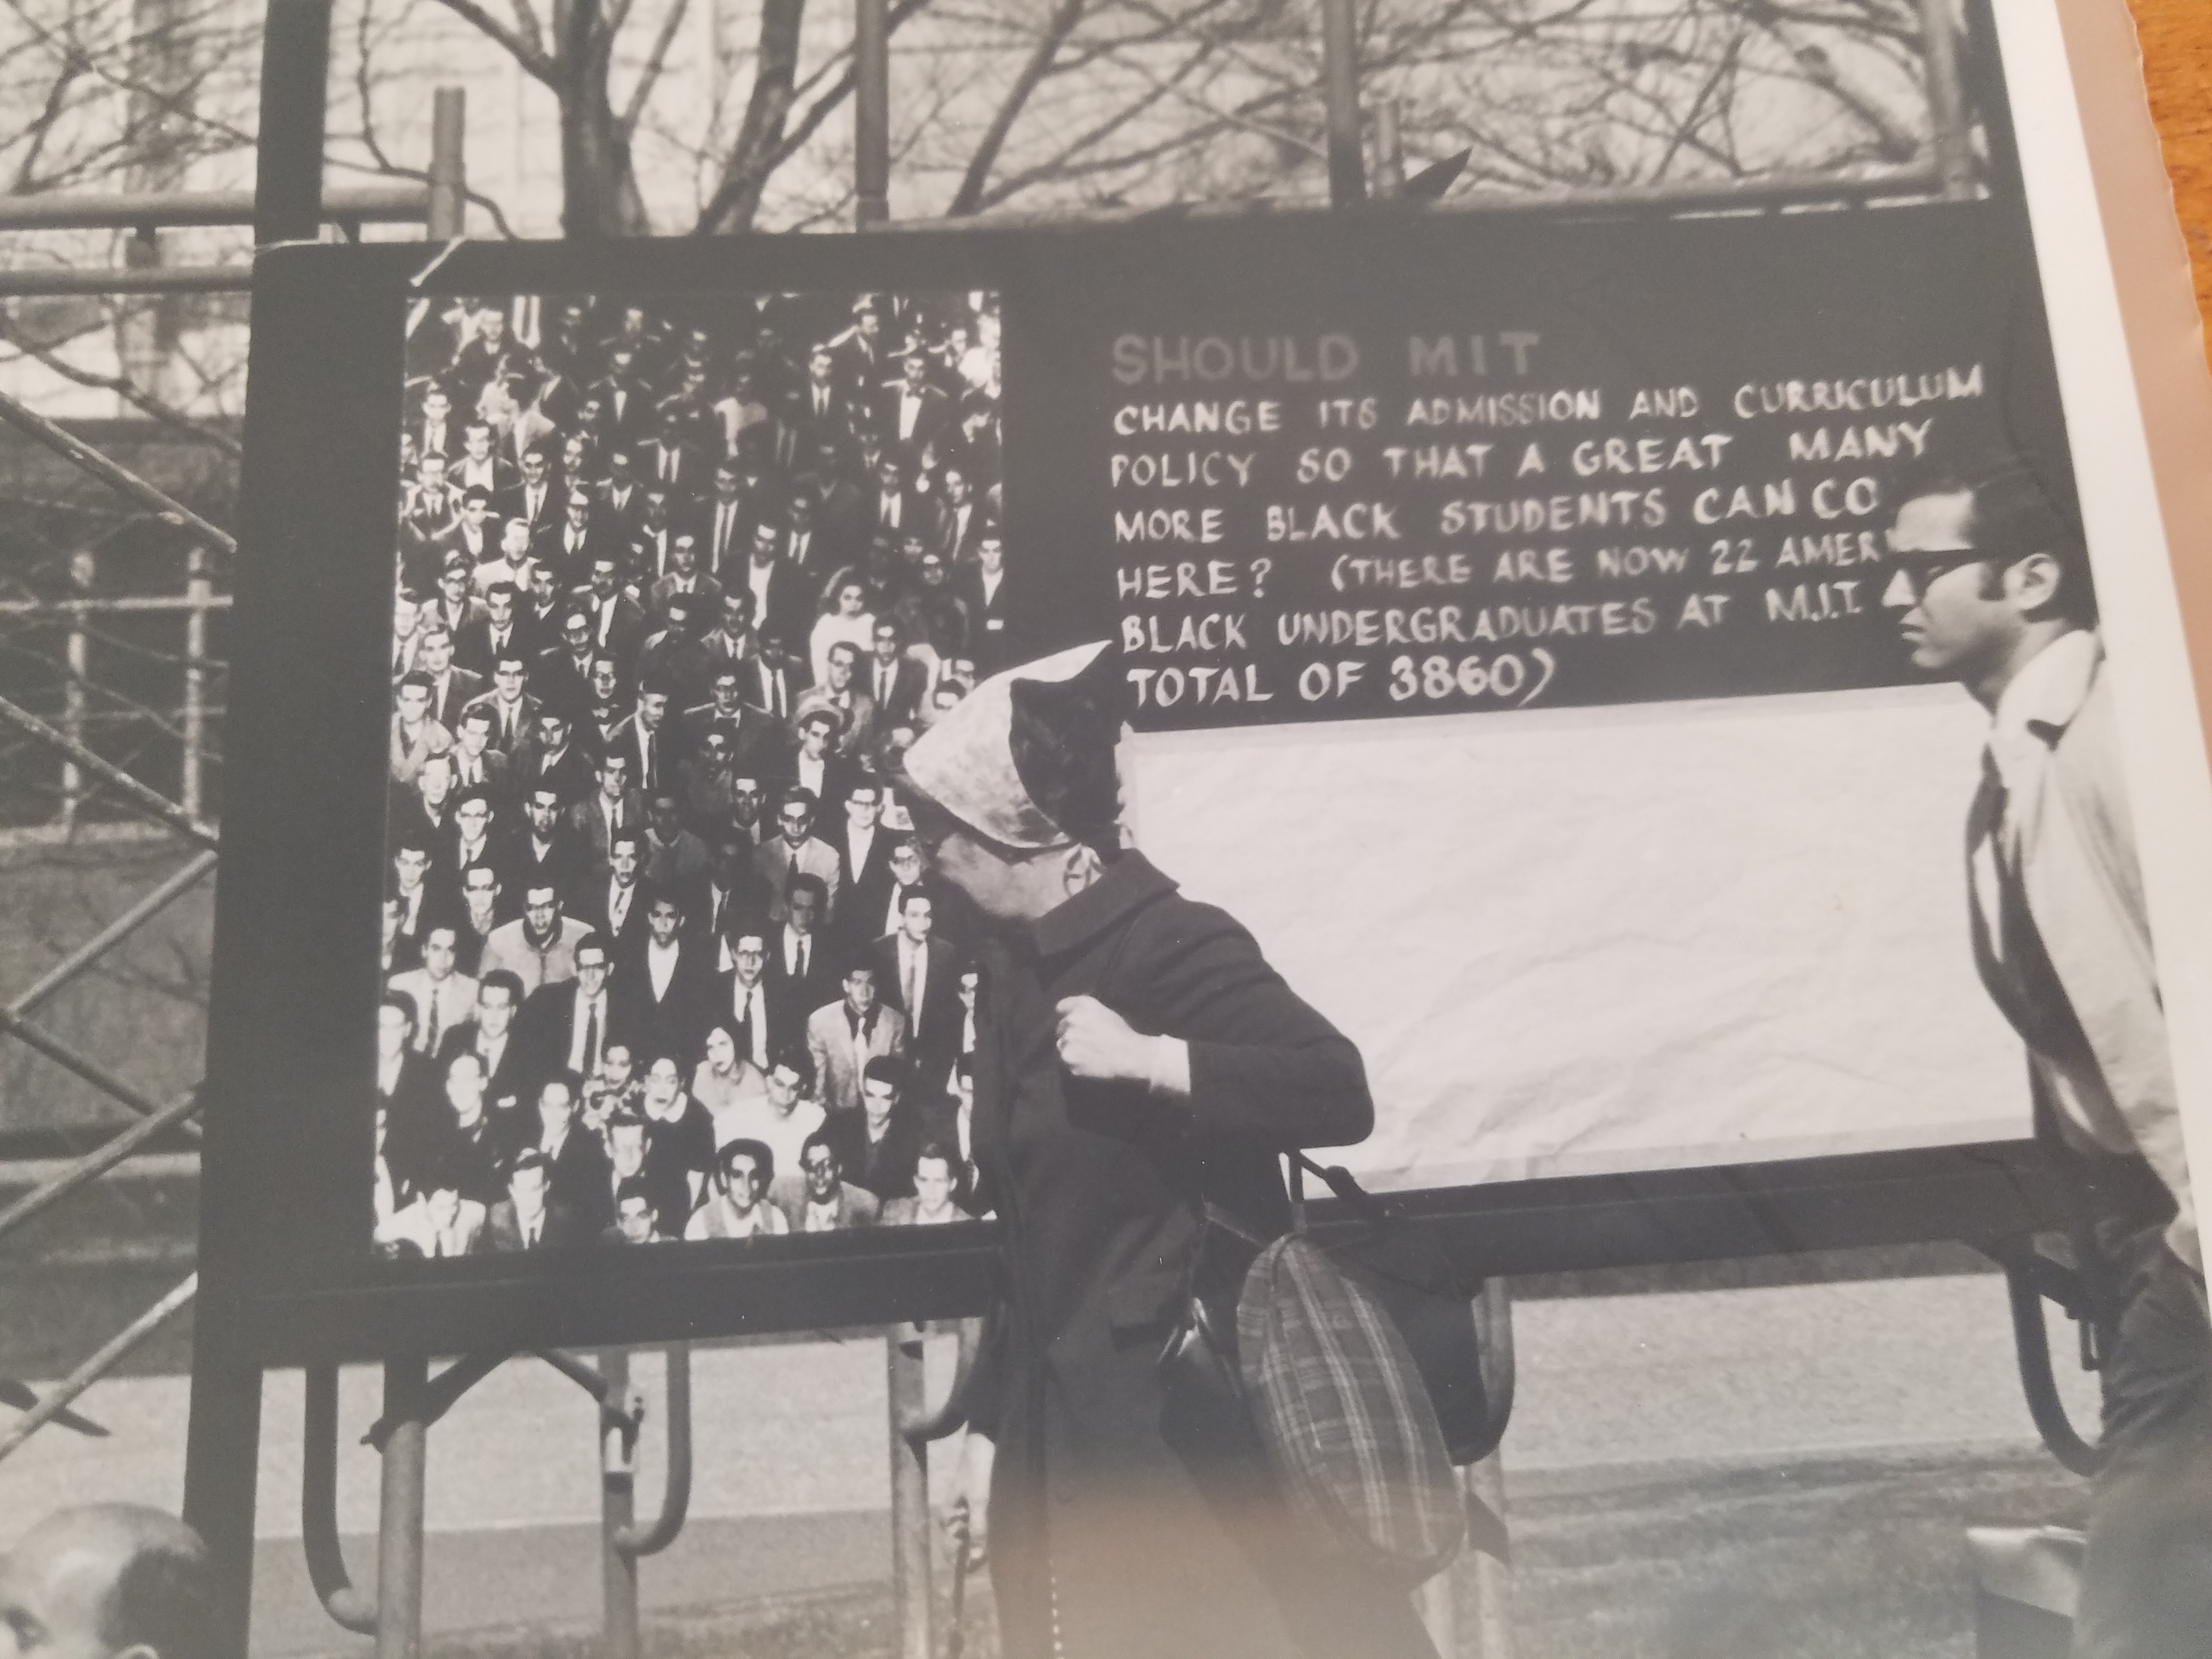 SHOULD MIT
CHANGE ITS ADMISSION AND CURRICULUM
POLICY SO THAT A GREAT MANY
MORE BLACK STUDENTS CAN CO
HERE? (THERE ARE NOW 22 AMER
BLACK UNDERGRADUATES AT M.I.T.
TOTAL OF 3860)